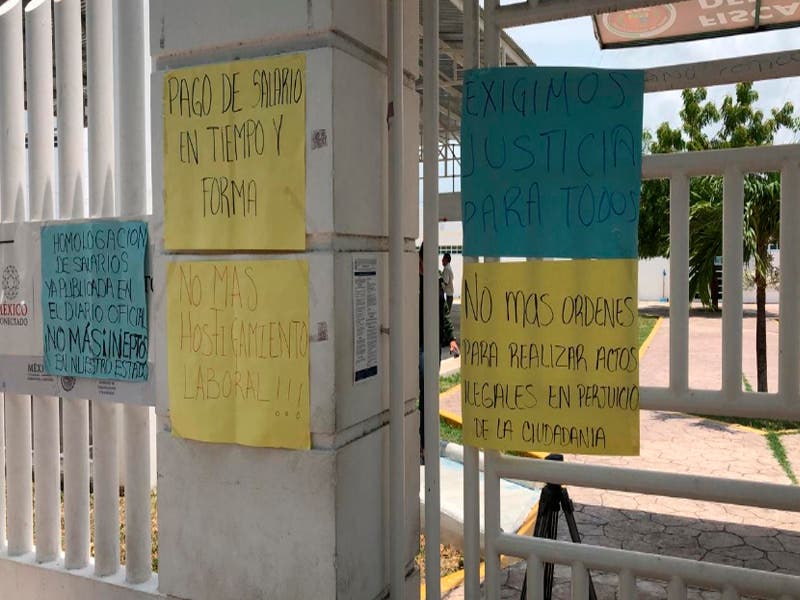 HOMOLOGACION
DE SALARIOS
YA PUBLICADA EN
EL DIARIO OFICIAL
NO MÁS INEPTOS
EN NUESTRO ESTADO
PAGO DE SALARIO
EN TIEMPO Y
FORMA
NO MAS
HOSTIGAMIENTO
LABORAL!!!
EXIGIMOS
JUSTICIA
PARA TODOS
NO MAS ORDENES
PARA REALIZAR ACTOS
ILEGALES EN PERJUICIO
DE LA CIUDADANIA
MÉXICO
CONECTADO
FISCA